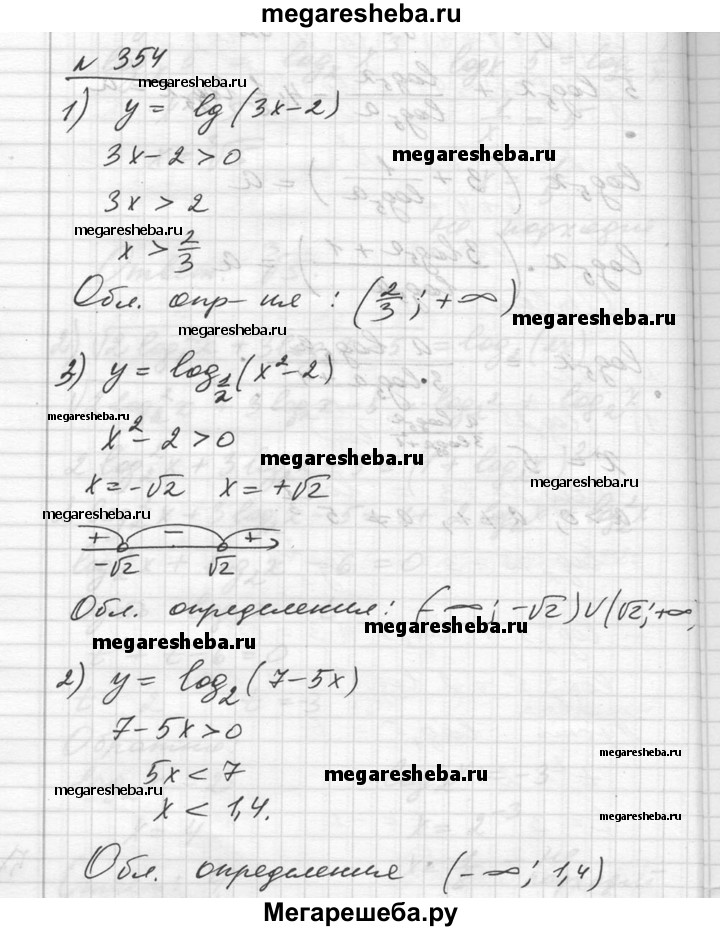 megaresheba.ru
№ 354
megaresheba.ru
1) y = lg(3x-2)
3x-2>0
megaresheba.ru
3x > 2
megaresheba.ru
x > 2/3
Обл. опр-ния : (2/3; +∞)
megaresheba.ru
megaresheba.ru
3) y = log_{1/2}(x²-2)
megaresheba.ru
x² - 2 > 0
megaresheba.ru
x = -√2 x = +√2
megaresheba.ru
megaresheba.ru
+ - +
-√2 √2
Обл. определения: (-∞; -√2) ∪ (√2; +∞
megaresheba.ru
megaresheba.ru
2) y = log₂(7-5x)
7-5x>0
megaresheba.ru
5x < 7
megaresheba.ru
megaresheba.ru
x < 1,4.
Обл. определения (-∞; 1,4)
Мегарешеба.ру